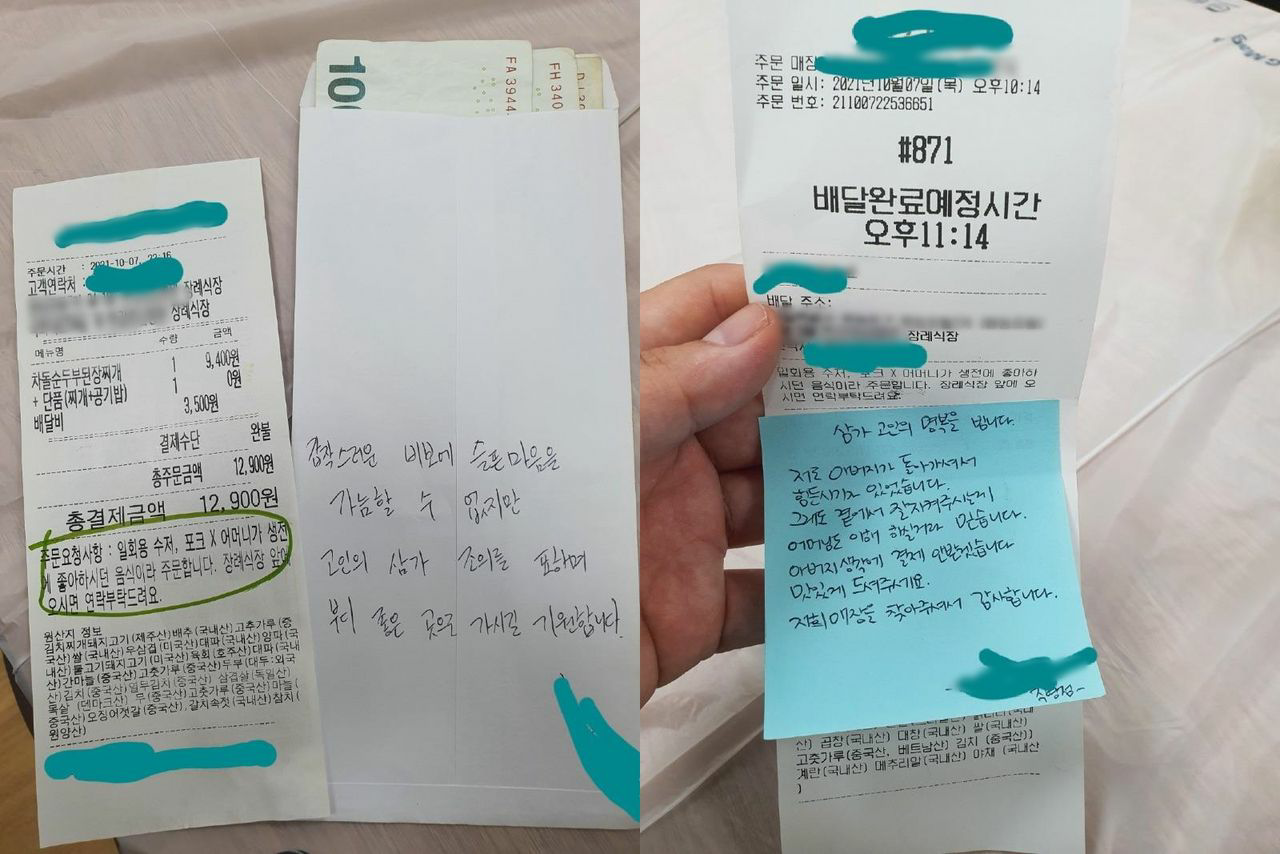 주문시간 : 2021-10-07, 22:16
고객연락처 :
장례식장
장례식장
메뉴명 수량 금액
차돌순두부된장찌개 1 9,400원
+ 단품(찌개+공기밥) 1 0원
배달비 3,500원
결제수단 완불
총주문금액 12,900원
총결제금액 12,900원
주문요청사항 : 일회용 수저, 포크 X 어머니가 생전
에 좋아하시던 음식이라 주문합니다. 장례식장 앞에
오시면 연락부탁드려요.
원산지 정보
김치찌개돼지고기(제주산)배추(국내산)고추가루(중
국산)쌀(국내산)우삼겹(미국산)대파(국내산)양파(국
내산)불고기돼지고기(미국산)육회(호주산)대파(국내
산)간마늘(중국산)고춧가루(중국산)두부(대두:외국
산)김치(중국산)열무김치(중국산) 삼겹살(독일산)
목살 (덴마크산) 무(중국산)고춧가루(중국산)마늘(
중국산)오징어젓갈(중국산),갈치속젓(국내산)참치(
원양산)
100
FA 3944
FH 340
갑작스러운 비보에 슬픈마음을
가늠할 수 없지만
고인의 삼가 조의를 표하며
부디 좋은 곳으로 가시길 기원합니다.
주문 매장
주문 일시: 2021년10월07일(목) 오후10:14
주문 번호: 21100722536651
#871
배달완료예정시간
오후11:14
배달 주소:
장례식장
일회용 수저, 포크 X 어머니가 생전에 좋아하
시던 음식이라 주문합니다. 장례식장 앞에 오
시면 연락부탁드려요.
삼가 고인의 명복을 빕니다.
저도 아버지가 돌아가셔서
힘든시기가 있었습니다.
그래도 곁에서 잘지켜주시는게
어머님도 이해 하실거라 믿습니다.
아버지생각에 결제 안받겠습니다
맛있게 드셔주세요.
저희매장을 찾아주셔서 감사합니다.
산) 곱창(국내산) 대창(국내산) 쌀(국내산)
고춧가루(중국산, 베트남산) 김치(중국산))
계란(국내산) 메추리알(국내산) 야채 (국내산
)